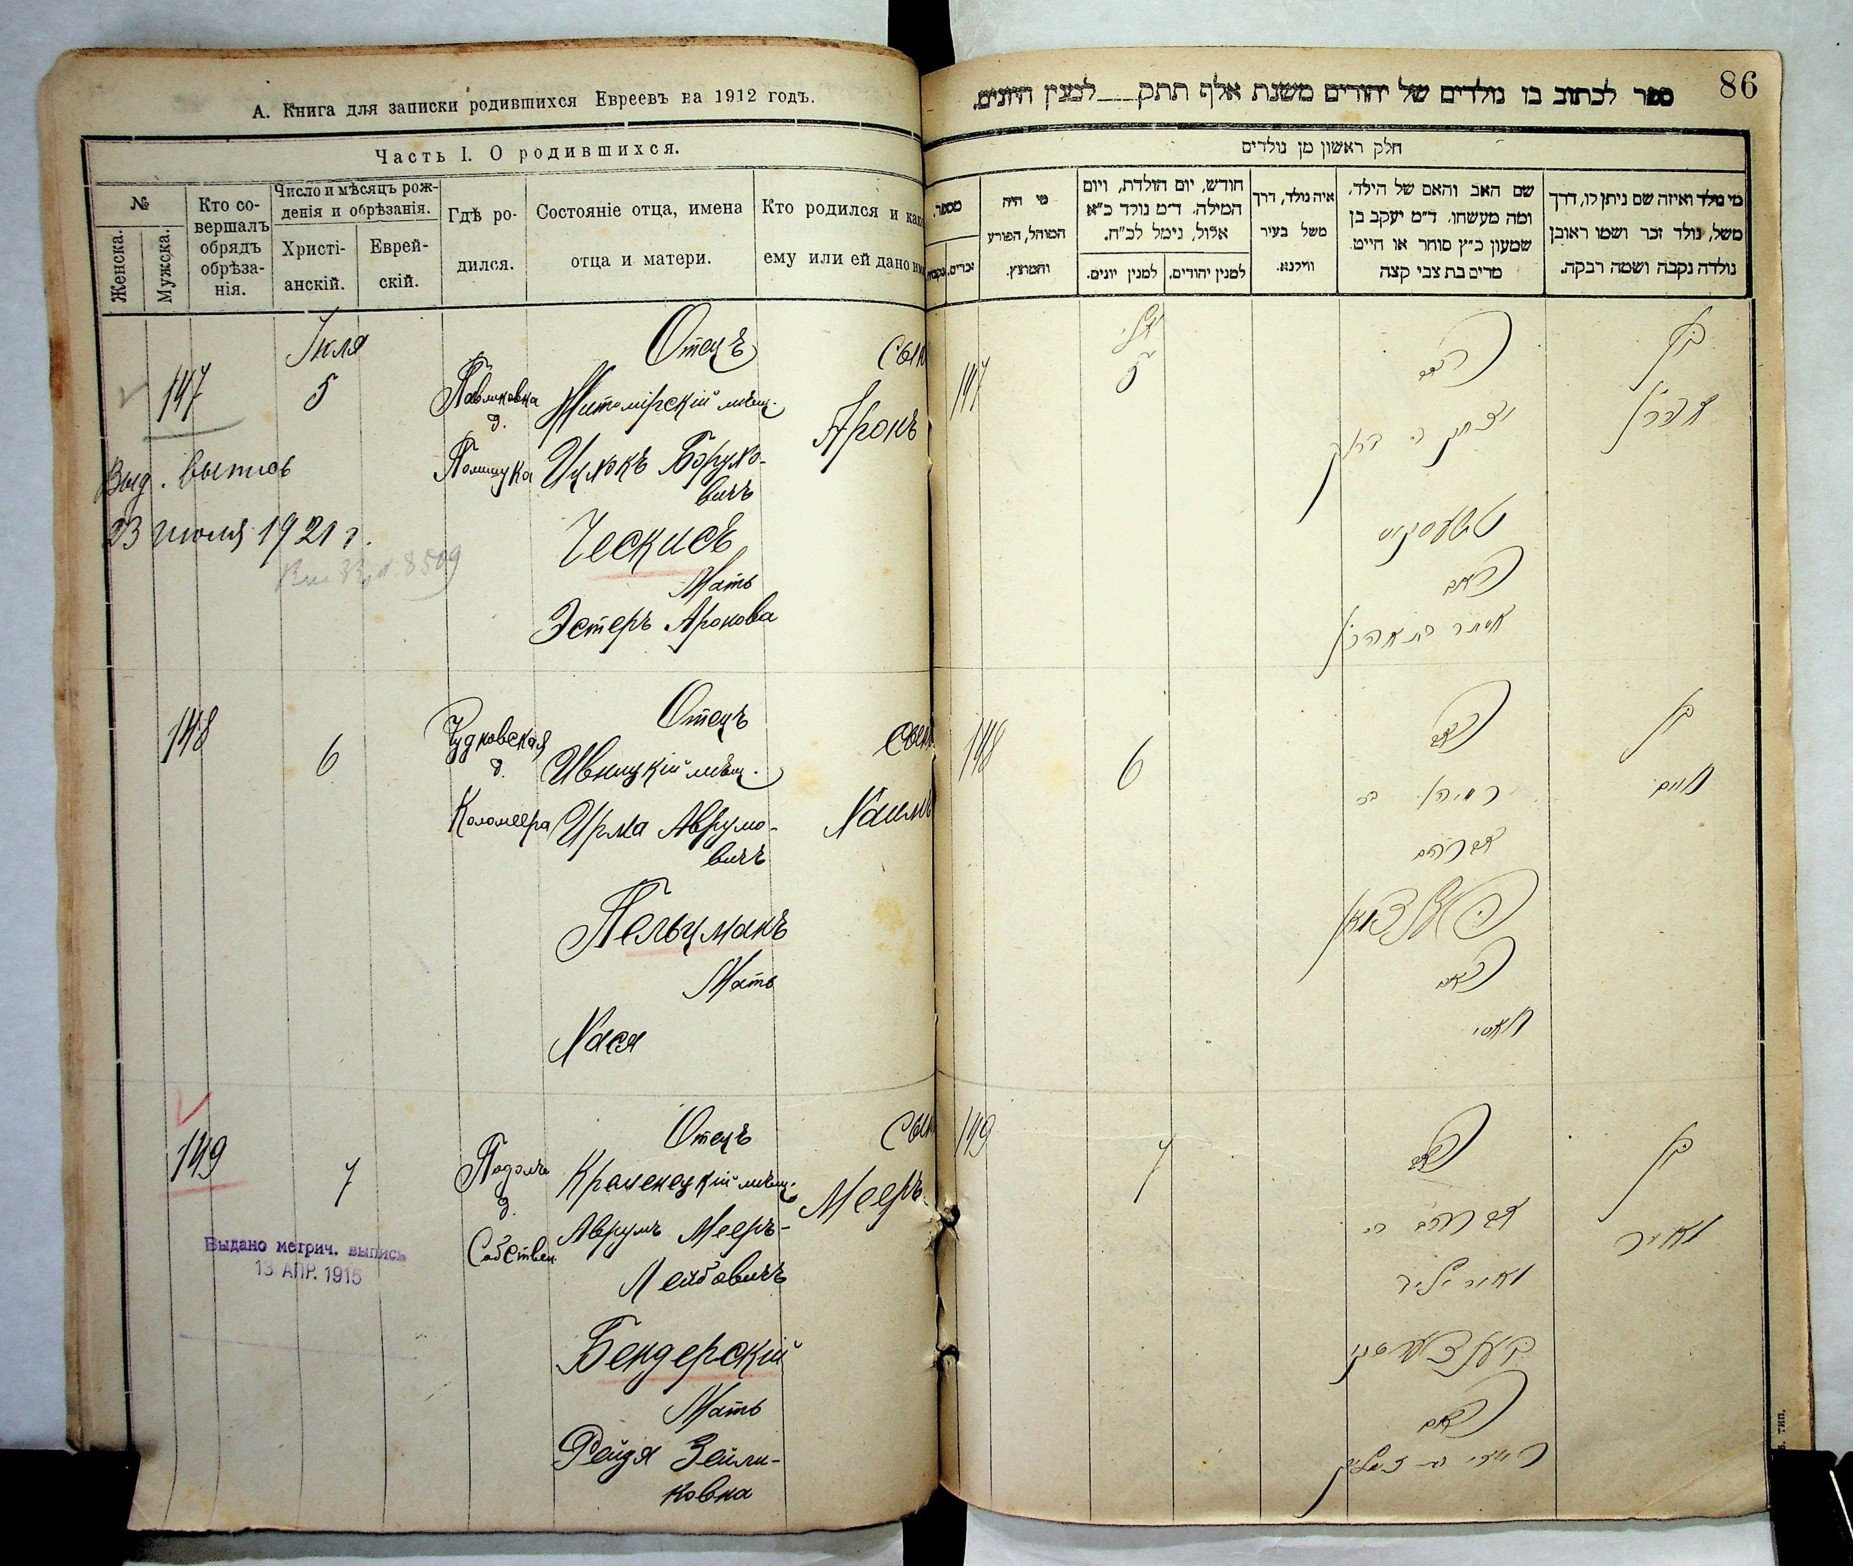 А. Книга для записки родившихся Евреевъ на 1912 годъ.
Часть I. О родившихся.
№
Женска.
Мужска.
Кто со-
вершалъ
обрядъ
обрѣза-
нія.
Число и мѣсяцъ рож-
денія и обрѣзанія.
Христі-
анскій.
Еврей-
скій.
Гдѣ ро-
дился.
Состояніе отца, имена
отца и матери.
Кто родился и как
ему или ей дано им
147
Іюля
5
Павликовка
д.
Полищука
Отецъ
Житомірскій мѣщ.
Ицхокъ Борухо-
вичъ
Ческисъ
Мать
Эстеръ Аронова
Сынъ
Аронъ
Выд. выпись
23 июля 1921 г.
148
6
Чудновская
д.
Коломеера
Отецъ
Ивницкій мѣщ.
Ирма Аврумо-
вичъ
Пельцманъ
Мать
Хася
Сынъ
Хаимъ
149
7
Подолъ
д.
Собствен
Отецъ
Кременецкій мѣщ.
Аврумъ Мееръ-
Лейбовичъ
Бендерскій
Мать
Рейзя Зейли-
ковна
Сын
Мееръ
Выдано метрич. выпись
13 АПР. 1915
86
ספר לכתוב בו נולדים של יהודים משנת אלף תתק___למנין היונים.
חלק ראשון מן נולדים
מי נולד ואיזה שם ניתן לו, דרך
משל, נולד זכר ושמו ראובן
נולדה נקבה ושמה רבקה.
שם האב והאם של הילד,
ומה מעשהו. ד״מ יעקב בן
שמעון כ״ץ סוחר או חייט.
מרים בת צבי קצה
איה נולד, דרך
משל בעיר
ווילנא.
חודש, יום הולדת, ויום
המילה. ד״מ נולד כ״א
אלול, נימל לכ״ח.
למנין יהודים.
למנין יונים.
מי היה
המוהל, הפורע
והמוצץ.
מספר.
זכרים.
נקבות
147
יולי
5
האב
יצחק ב׳ ברוך
טשעסקיס
האם
אסתר בת אהרן
בן
אהרן
148
6
האב
אברהם
האם
חאסי
בן
חיים
149
7
האב
אברהם
מאיר ליב
בענדערסקי
האם
בן
מאיר